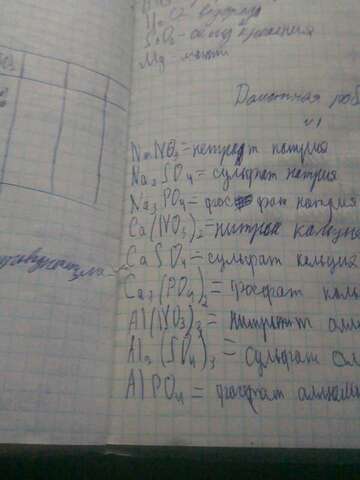 H₂O - водород
SiO₂ - оксид кремния
Mg - магний
Домашная раб
№1
NaNO₃ = нетрат натрия
Na₂SO₄ = сульфат натрия
Na₃PO₄ = фосфат натрия
Ca(NO₃)₂ = нитрат кальция
CaSO₄ = сульфат кальция
Ca₃(PO₄)₂ = фосфат каль
Al(NO₃)₃ = нитратт алю
Al₂(SO₄)₃ = сульфат ал
AlPO₄ = фосфат алюми